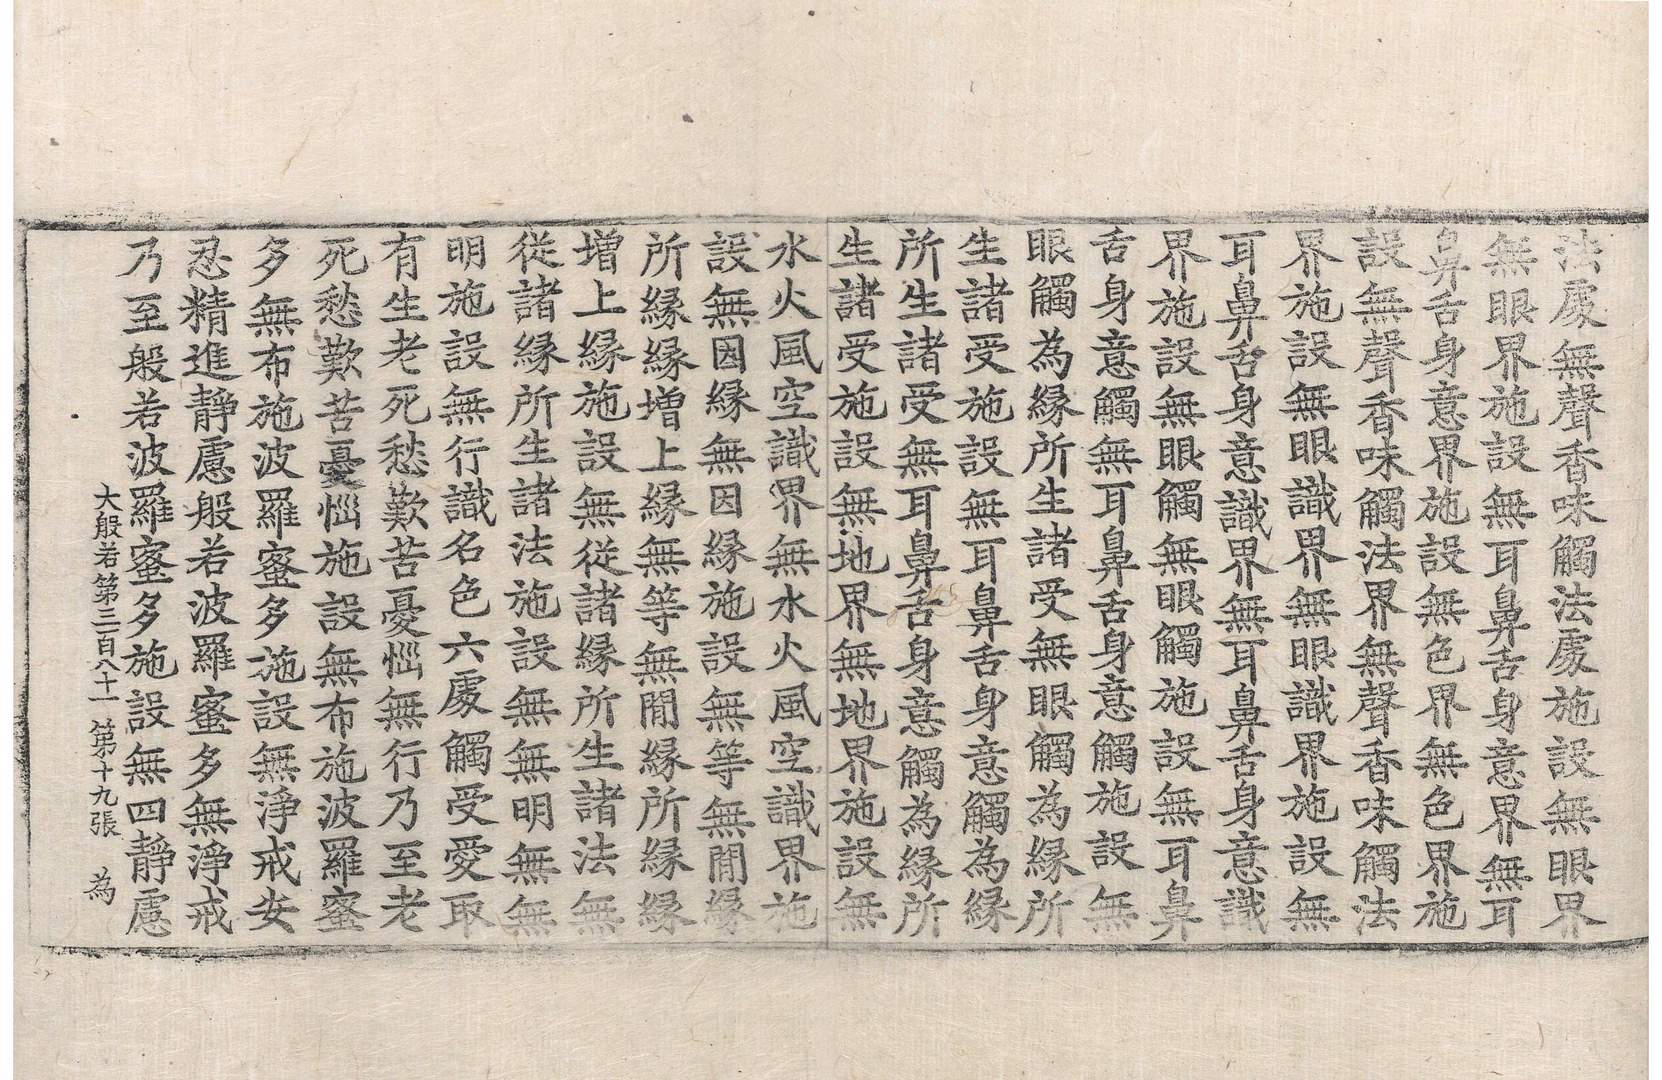 法處無聲香味觸法處施設無眼界
無眼界施設無耳鼻舌身意界無耳
鼻舌身意界施設無色界無色界施
設無聲香味觸法界無聲香味觸法
界施設無眼識界無眼識界施設無
耳鼻舌身意識界無耳鼻舌身意識
界施設無眼觸無眼觸施設無耳鼻
舌身意觸無耳鼻舌身意觸施設無
眼觸為緣所生諸受無眼觸為緣所
生諸受施設無耳鼻舌身意觸為緣
所生諸受無耳鼻舌身意觸為緣所
生諸受施設無地界無地界施設無
水火風空識界無水火風空識界施
設無因緣無因緣施設無等無間緣
所緣緣增上緣無等無間緣所緣緣
增上緣施設無從諸緣所生諸法無
從諸緣所生諸法施設無無明無無
明施設無行識名色六處觸受愛取
有生老死愁歎苦憂惱無行乃至老
死愁歎苦憂惱施設無布施波羅蜜
多無布施波羅蜜多施設無淨戒安
忍精進靜慮般若波羅蜜多無淨戒
乃至般若波羅蜜多施設無四靜慮
大般若第三百八十一 第十九張 為